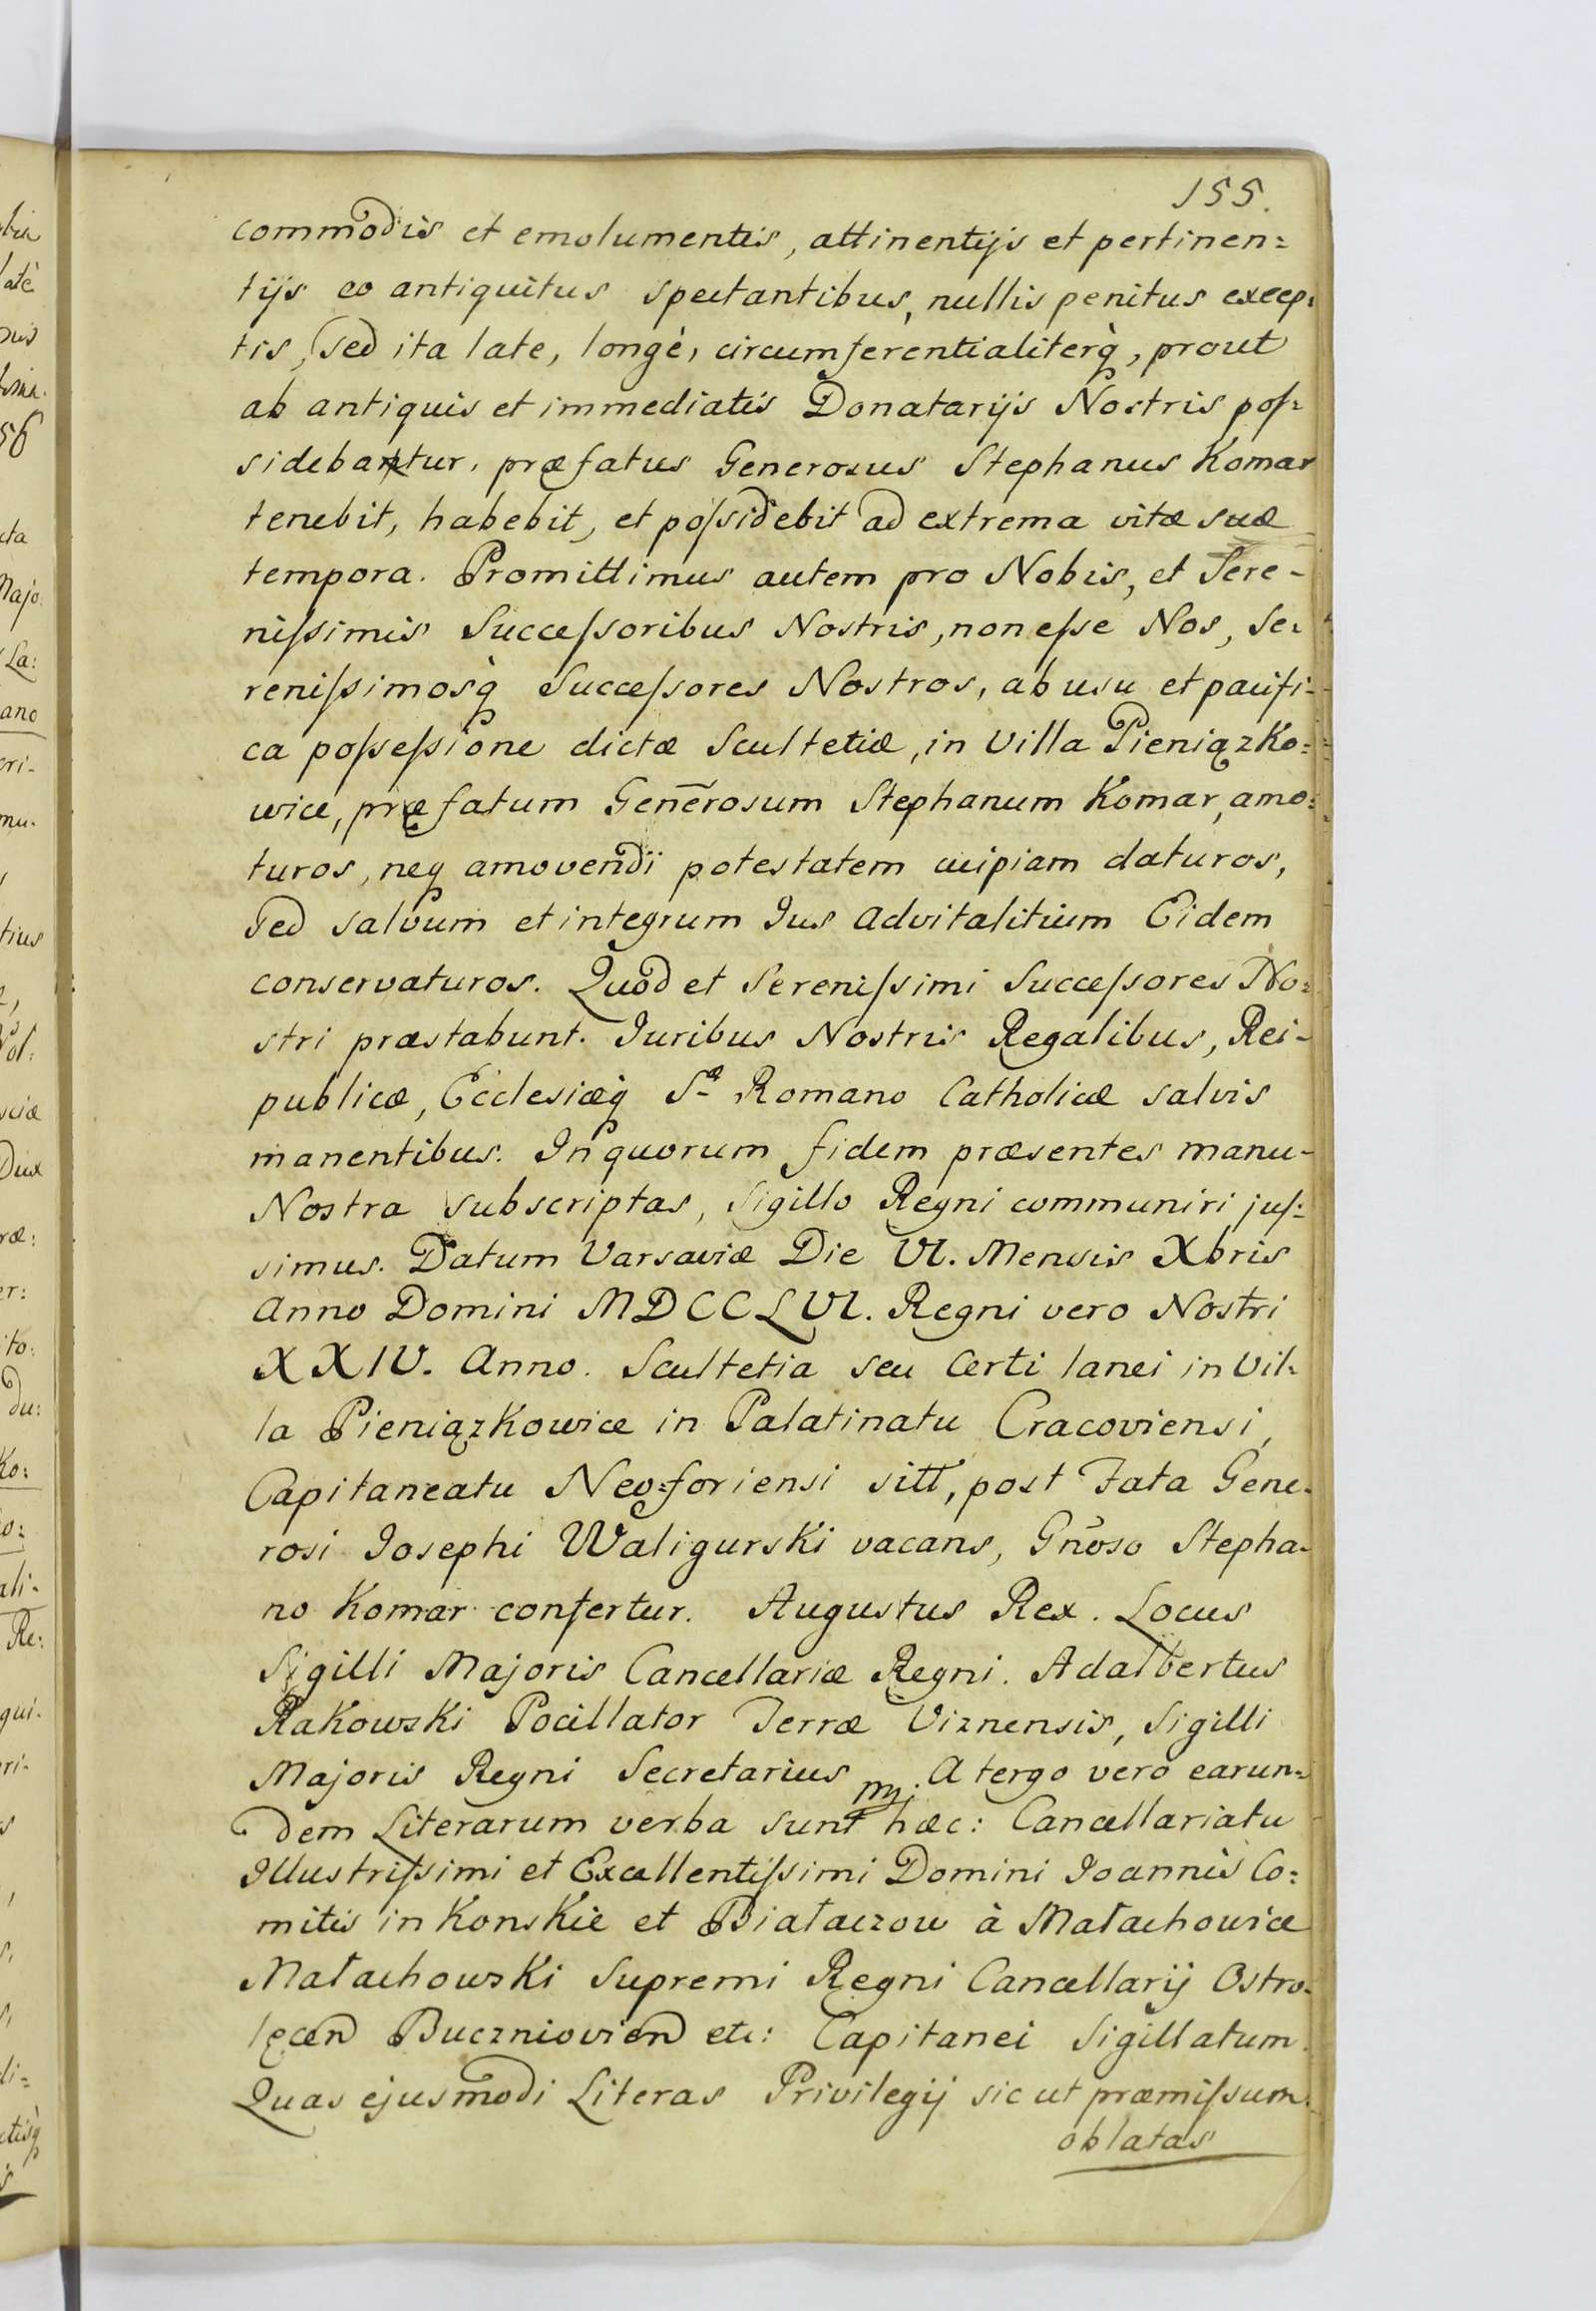 155.
commodis et emolumentis, attinentijs et pertinen=
tijs eo antiquitus spectantibus, nullis penitus excep=
tis, sed ita late, longè, circumferentialiterq̀, prout
ab antiquis et immediatis Donatarijs Nostris pos=
sidebantur, præfatus Generosus Stephanus Komar
tenebit, habebit, et possidebit ad extrema vitæ suæ
tempora. Promittimus autem pro Nobis, et Sere-
nissimis Successoribus Nostris, non esse Nos, Se=
renissimosq̀ Successores Nostros, ab usu et pacifi-
ca possessione dictæ Scultetiæ, in Villa Pieniązko=
wice, præfatum Genērosum Stephanum Komar, amo=
turos, neq amovendi potestatem cuipiam daturos,
sed salvum et integrum Jus Advitalitium Eidem
conservaturos. Quod et Serenissimi Successores No=
stri præstabunt. Juribus Nostris Regalibus, Rei-
publicæ, Ecclesiæq̀ Sæ Romano Catholicæ salvis
manentibus. In quorum fidem præsentes manu-
Nostra subscriptas, Sigillo Regni communiri jus=
simus. Datum Varsaviæ Die VI. Mensis Xbris
Anno Domini MDCCLVI. Regni vero Nostri
XXIV. Anno. Scultetia seu Certi lanei in Vil-
la Pieniązkowice in Palatinatu Cracoviensi,
Capitaneatu Neo=foriensi sitt, post Fata Gene-
rosi Josephi Waligurski vacans, Gn̄oso Stepha-
no Komar confertur. Augustus Rex. Locus
Sigilli Majoris Cancellariæ Regni. Adalbertus
Rakowski Pocillator Terræ Viznensis, Sigilli
Majoris Regni Secretarius mp. A tergo vero earun=
dem Literarum verba sunt hæc: Cancellariatu
Illustrissimi et Excellentissimi Domini Joannis Co=
mitis in Konskie et Białaczow à Małachowice
Małachowski Supremi Regni Cancellarij Ostro-
łęcen Buczniovien etc: Capitanei Sigillatum.
Quas ejusmodi Literas Privilegij sic ut præmissum
oblatas